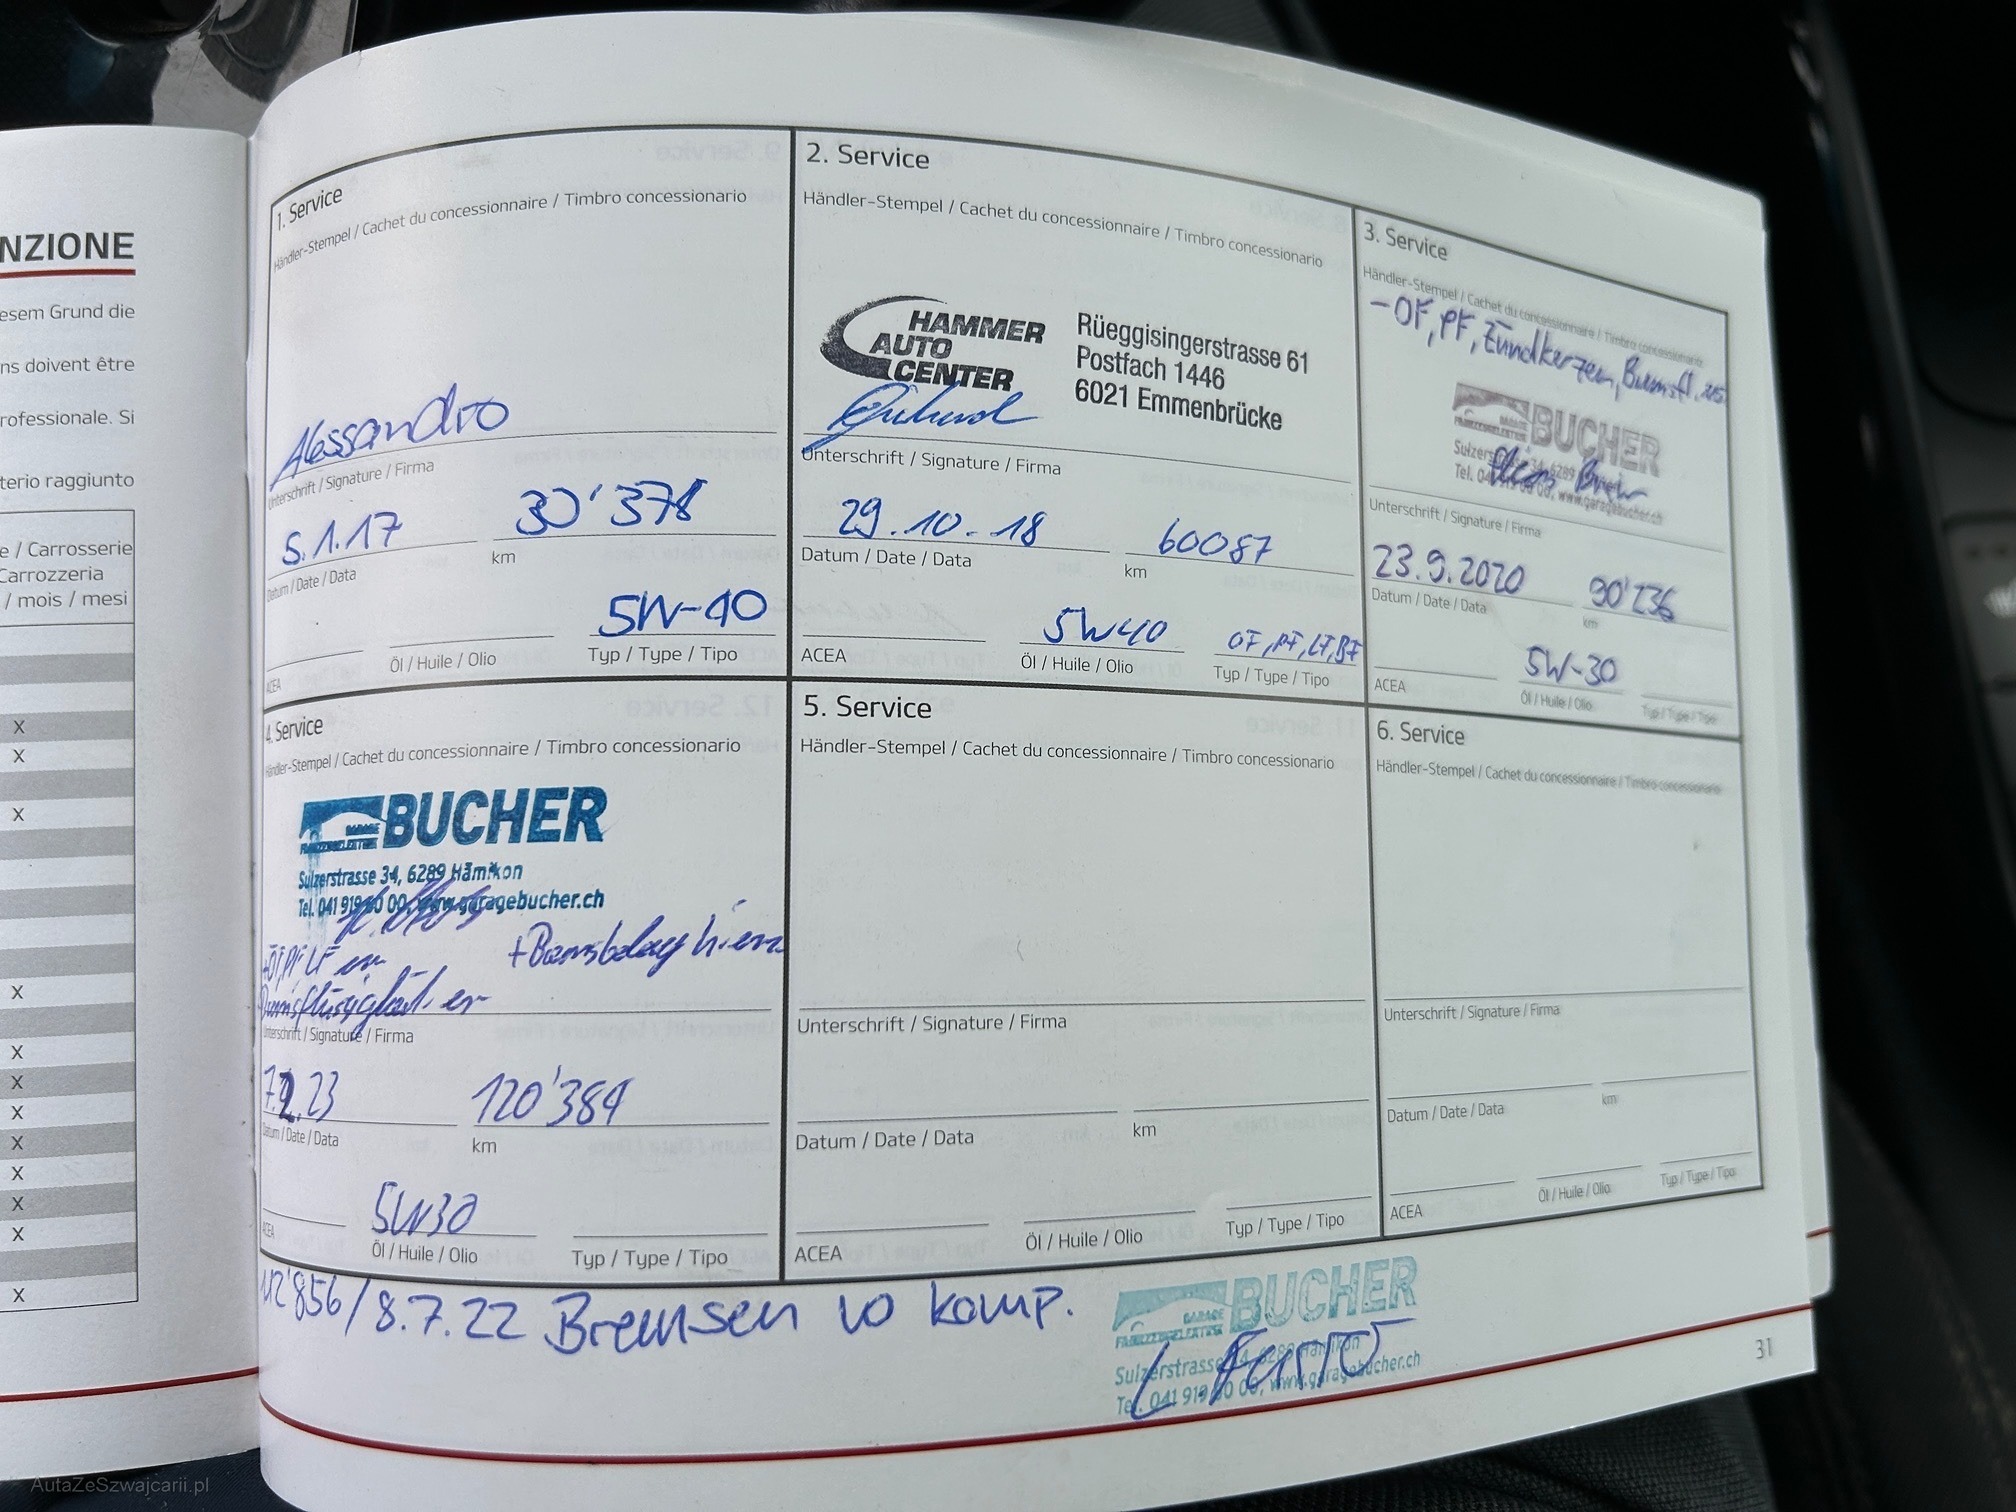 NZIONE
esem Grund die
ns doivent être
rofessionale. Si
terio raggiunto
e / Carrosserie
Carrozzeria
/ mois / mesi
X
X
X
X
X
X
X
X
X
X
X
X
1. Service
Händler-Stempel / Cachet du concessionnaire / Timbro concessionario
Alessandro
Unterschrift / Signature / Firma
5.1.17
30'378
Datum / Date / Data
km
5W-40
ACEA
Öl / Huile / Olio
Typ / Type / Tipo
2. Service
Händler-Stempel / Cachet du concessionnaire / Timbro concessionario
HAMMER
AUTO
CENTER
Rüeggisingerstrasse 61
Postfach 1446
6021 Emmenbrücke
Unterschrift / Signature / Firma
29.10.18
60087
Datum / Date / Data
km
5W40
OF, PF, LF, BF
ACEA
Öl / Huile / Olio
Typ / Type / Tipo
3. Service
Händler-Stempel / Cachet du concessionnaire / Timbro concessionario
- OF, PF, Zündkerzen, Bremsfl.
GARAGE
BUCHER
Unterschrift / Signature / Firma
23.9.2020
90'236
Datum / Date / Data
km
5W-30
ACEA
Öl / Huile / Olio
Typ / Type / Tipo
4. Service
Händler-Stempel / Cachet du concessionnaire / Timbro concessionario
GARAGE
BUCHER
Sulzerstrasse 34, 6289 Hämikon
Tel. 041 919 00, www.garagebucher.ch
+ÖF, PF LF er
+Bremsbelag hinten
Bremsflüssigkeit er
Unterschrift / Signature / Firma
7.2.23
120'384
Datum / Date / Data
km
5W30
ACEA
Öl / Huile / Olio
Typ / Type / Tipo
5. Service
Händler-Stempel / Cachet du concessionnaire / Timbro concessionario
Unterschrift / Signature / Firma
Datum / Date / Data
km
ACEA
Öl / Huile / Olio
Typ / Type / Tipo
6. Service
Händler-Stempel / Cachet du concessionnaire / Timbro concessionario
Unterschrift / Signature / Firma
Datum / Date / Data
km
ACEA
Öl / Huile / Olio
Typ / Type / Tipo
112'856/8.7.22 Bremsen vo komp.
GARAGE
BUCHER
Sulzerstrasse
www.garagebucher.ch
31
AutaZeSzwajcarii.pl